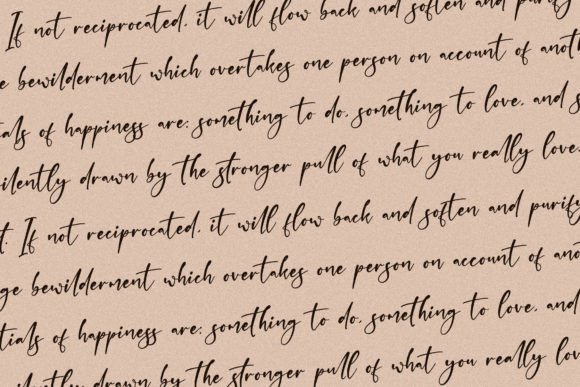 If not reciprocated, it will flow back and soften and purify
ge bewilderment which overtakes one person on account of anoth
tials of happiness are: something to do, something to love, and s
silently drawn by the stronger pull of what you really love.
t. If not reciprocated, it will flow back and soften and purify
ge bewilderment which overtakes one person on account of ano
tials of happiness are: something to do, something to love, and
ilently drawn by the stronger pull of what you really love